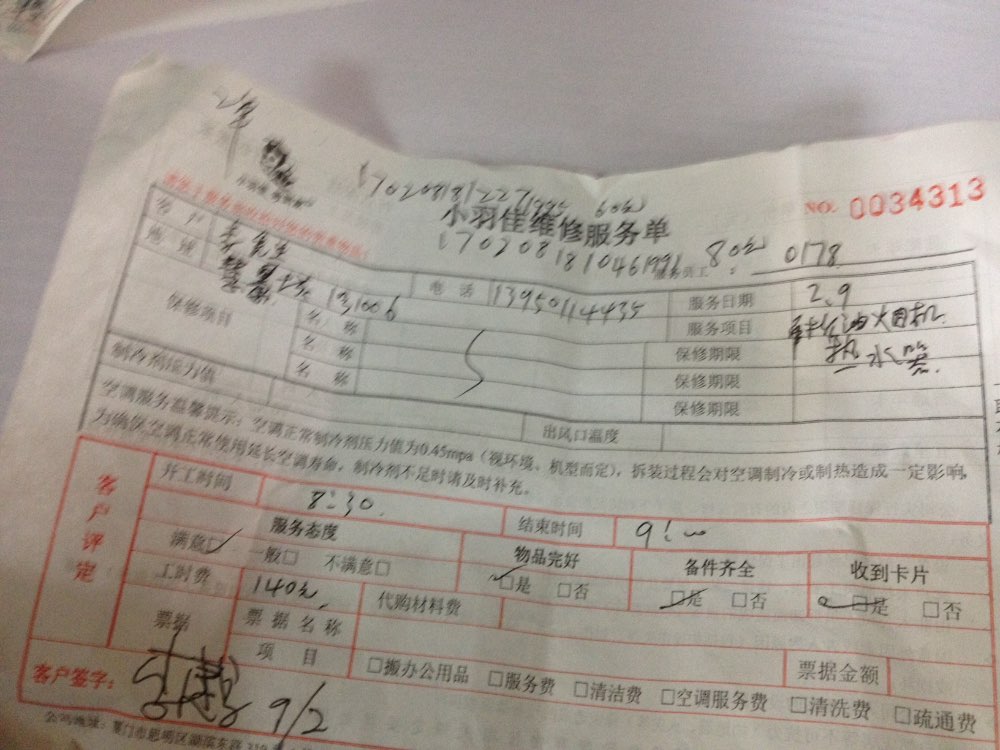 NO. 0034313
小羽佳维修服务单
服务员工: 0178
80元
60元
客户
电话 13950114435
服务日期 2.9
地址
保修项目
名称
服务项目 油烟机
热水器
名称
保修期限
名称
保修期限
保修期限
制冷剂压力值
出风口温度
空调服务温馨提示:空调正常制冷剂压力值为0.45mpa(视环境、机型而定),拆装过程会对空调制冷或制热造成一定影响,
为确保空调正常使用延长空调寿命,制冷剂不足时请及时补充。
客户评定
开工时间 8:30
结束时间 9:00
服务态度
物品完好
备件齐全
收到卡片
满意□ 一般□ 不满意□
□是 □否
□是 □否
□是 □否
工时费 140元
代购材料费
票据
票据名称
项目
□搬办公用品 □服务费 □清洁费 □空调服务费 □清洗费 □疏通费
票据金额
客户签字:
9/2
公司地址:厦门市思明区湖滨东路